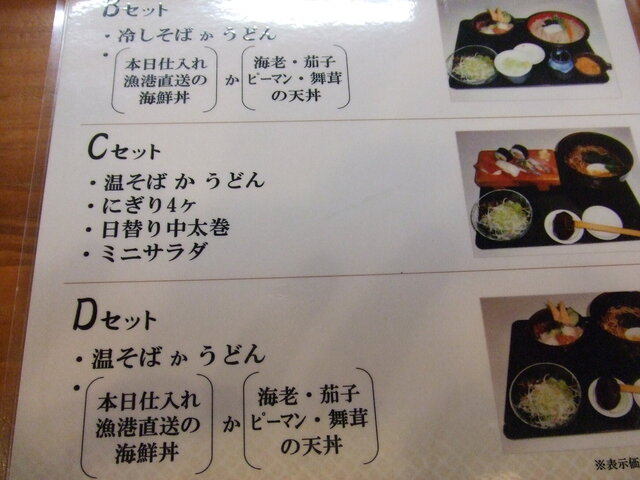 Bセット
・冷しそば か うどん
・本日仕入れ 漁港直送の 海鮮丼 か 海老・茄子 ピーマン・舞茸 の天丼
Cセット
・温そば か うどん
・にぎり4ヶ
・日替り中太巻
・ミニサラダ
Dセット
・温そば か うどん
・本日仕入れ 漁港直送の 海鮮丼 か 海老・茄子 ピーマン・舞茸 の天丼
※表示価